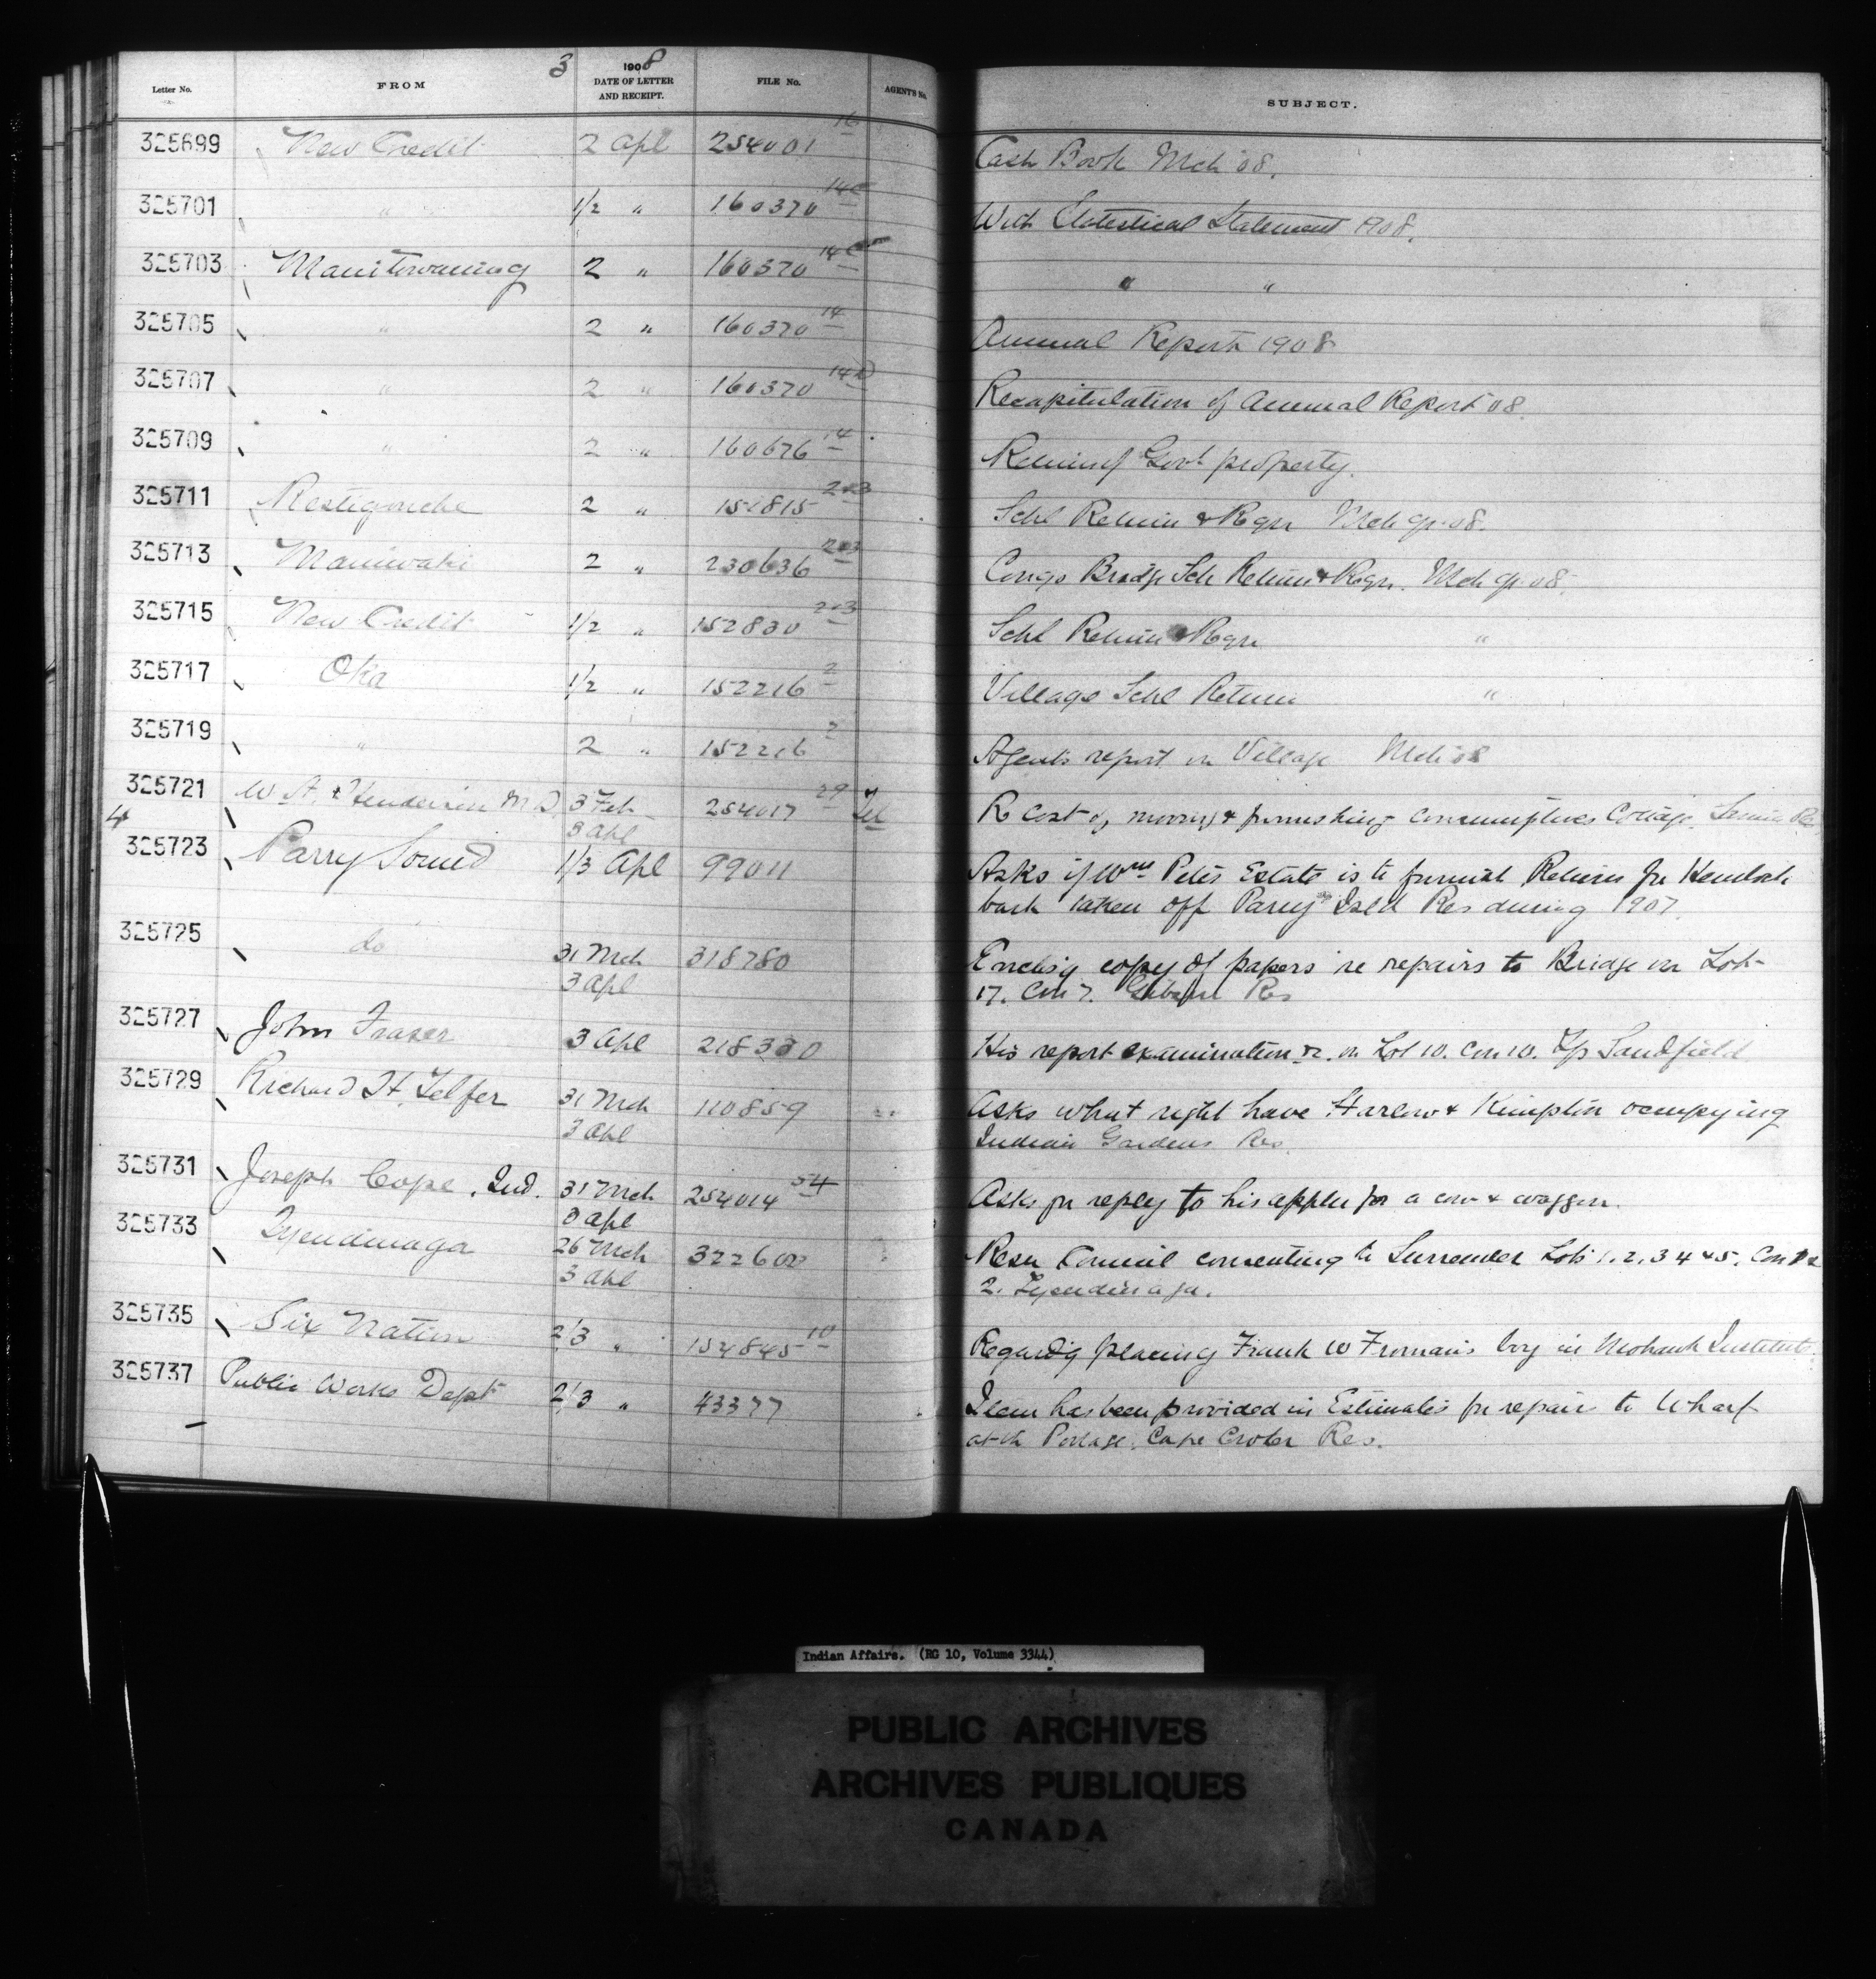 3
Letter No. FROM 1908 DATE OF LETTER AND RECEIPT. FILE No. AGENT'S No. SUBJECT.
325699 New Credit 2 Apl 254001 16 Cash Book Mch 08.
325701 " 1/2 " 160370 14c With Statistical Statement 1908.
325703 Manitowaning 2 " 160370 14c " "
325705 " 2 " 160370 14 Annual Report 1908
325707 " 2 " 160370 14 Recapitulation of Annual Report 08.
325709 " 2 " 160676 14 Return of Govt property.
325711 Restigouche 2 " 151815 2&3 Schl Return & Regr Mch qr 08.
325713 Maniwaki 2 " 230636 2&3 Congo Bridge Sch Return & Regr. Mch qr 08.
325715 New Credit 1/2 " 152830 2&3 Schl Return & Regr "
325717 Oka 1/2 " 152216 2 Village Schl Return "
325719 " 2 " 152216 2 Agents report on Village Mch 08
325721 W. A. Henderson M.D. 3 Feb 254017 29 Tel R cost of moving & furnishing consumptives Cottage
4 3 Apl
325723 Parry Sound 1/3 Apl 99011 Asks if Wm Peter Estate is to furnish Returns for Hemlock
bark taken off Parry Isld Res during 1907.
325725 do 31 Mch 318780 Enclos'g copy of papers re repairs to Bridge on Lot
3 Apl 17. Con 7. Res
325727 John Fraser 3 Apl 218330 His report examination &c. on Lot 10. Con 10. Tp Sandfield
325729 Richard H. Telfer 31 Mch 110859 Asks what right have Harlow & Kimpton occupying
3 Apl Indian Gardens Res.
325731 Joseph Cope, Ind. 31 Mch 254014 54 Asks for reply to his appln for a cow & waggon.
3 Apl
325733 Tyendinaga 26 Mch 322600 Resn Council consenting to Surrender Lots 1. 2. 3 4 & 5. Con 1 &
3 Apl 2. Tyendinaga.
325735 Six Nation 2/3 " 154845 10 Regard'g placing Frank W Froman's boy in Mohawk Institute.
325737 Public Works Dept 2/3 " 43377 Item has been provided in Estimates for repairs to Wharf
at the Portage, Cape Croker Res.
Indian Affairs. (RG 10, Volume 3344)
PUBLIC ARCHIVES
ARCHIVES PUBLIQUES
CANADA